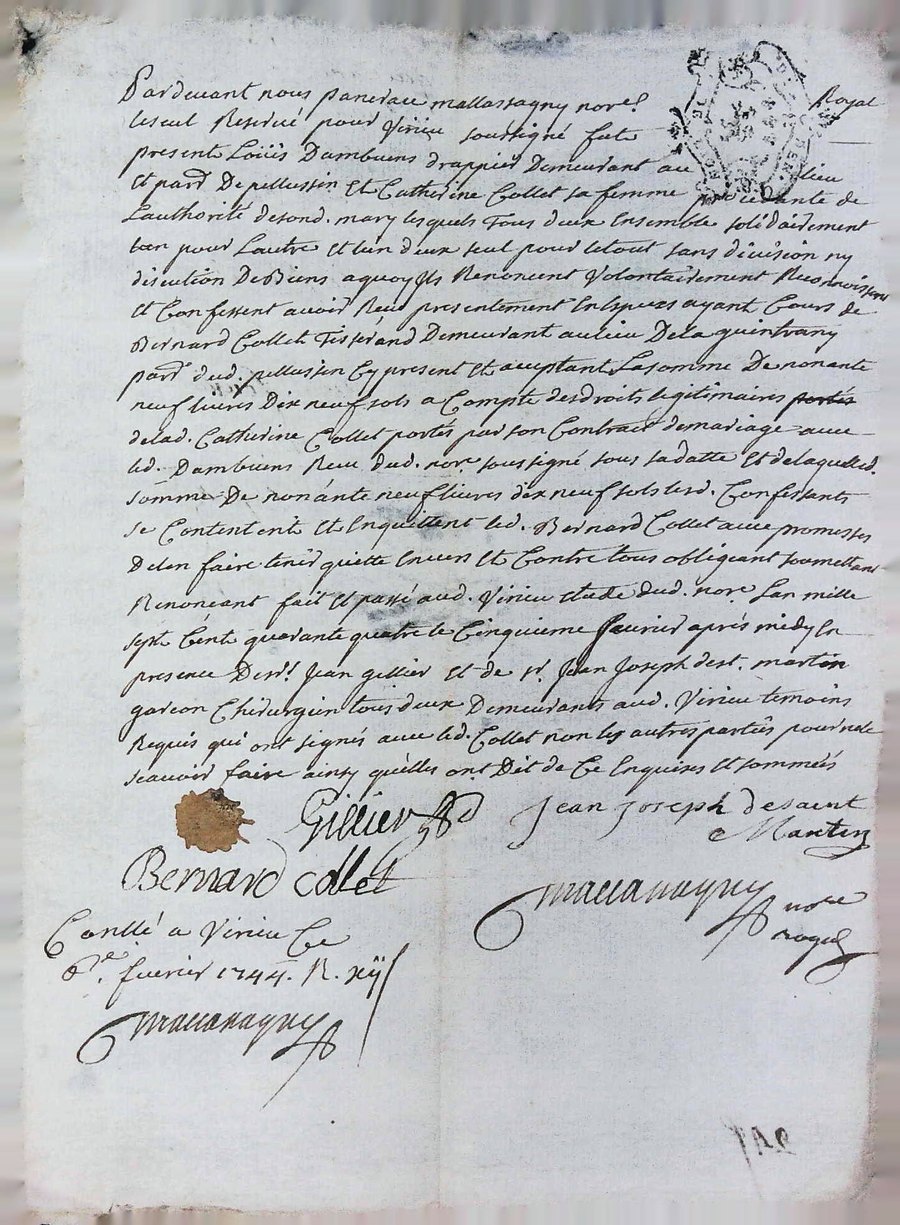 Pardevant nous pancrace mallassagny nore Royal
Reservé pour Virieu soussigné fute
present Loüis Dambuens drappier Demeurant au lieu
Et parr De pellussin Et Catherine Collet sa femme procedante de
Lauthorité desond. mary lesquels Tous deux Ensemble solidairement
pour Lautre Et lun deux seul pour letout sans division ny
discution De Biens aquoy Ils Renoncent Volontairement Reconnoissent
Et Confessent avoir Receu presentement En Especes ayant Cours de
Bernard Collet Tisserand Demeurant aulieu Dela quintrany
parr dud. pellussin Cy present Et acceptant La somme De nonante
neuf livres Dix neuf sols a Compte des droits legitimaires portés
delad. Catherine Collet portés par son Contract de mariage avec
led. Dambuens Receu dud. nore. soussigné sous sa datte Et delaquelled.
somme De nonante neuf livres dix neuf sols lesd. Confessants
se Contentent Et Enquittent led. Bernard Collet avec promesses
Delen faire tenir quitte Envers Et Contre tous obligeant soumettant
Renonçant fait Et passé aud. Virieu Etude dud. nore. Lan mille
sept Cent quarante quatre le Cinquieme feuvrier après midy En
presence De sr. Jean gillier Et de sr. Jean Joseph de st. martin
garcon Chirurgien tous deux Demeurants aud. Virieu temoins
Requis qui ont signés avec led. Collet non les autres parties pour ne le
scavoir faire ainsy qu'elles ont Dit de Ce Enquises Et sommées
Gillier Jean Joseph desaint
Martin
Bernard collet
nore
royal
Conllé a Virieu Ce
6e. fevrier 1744. R. xij s